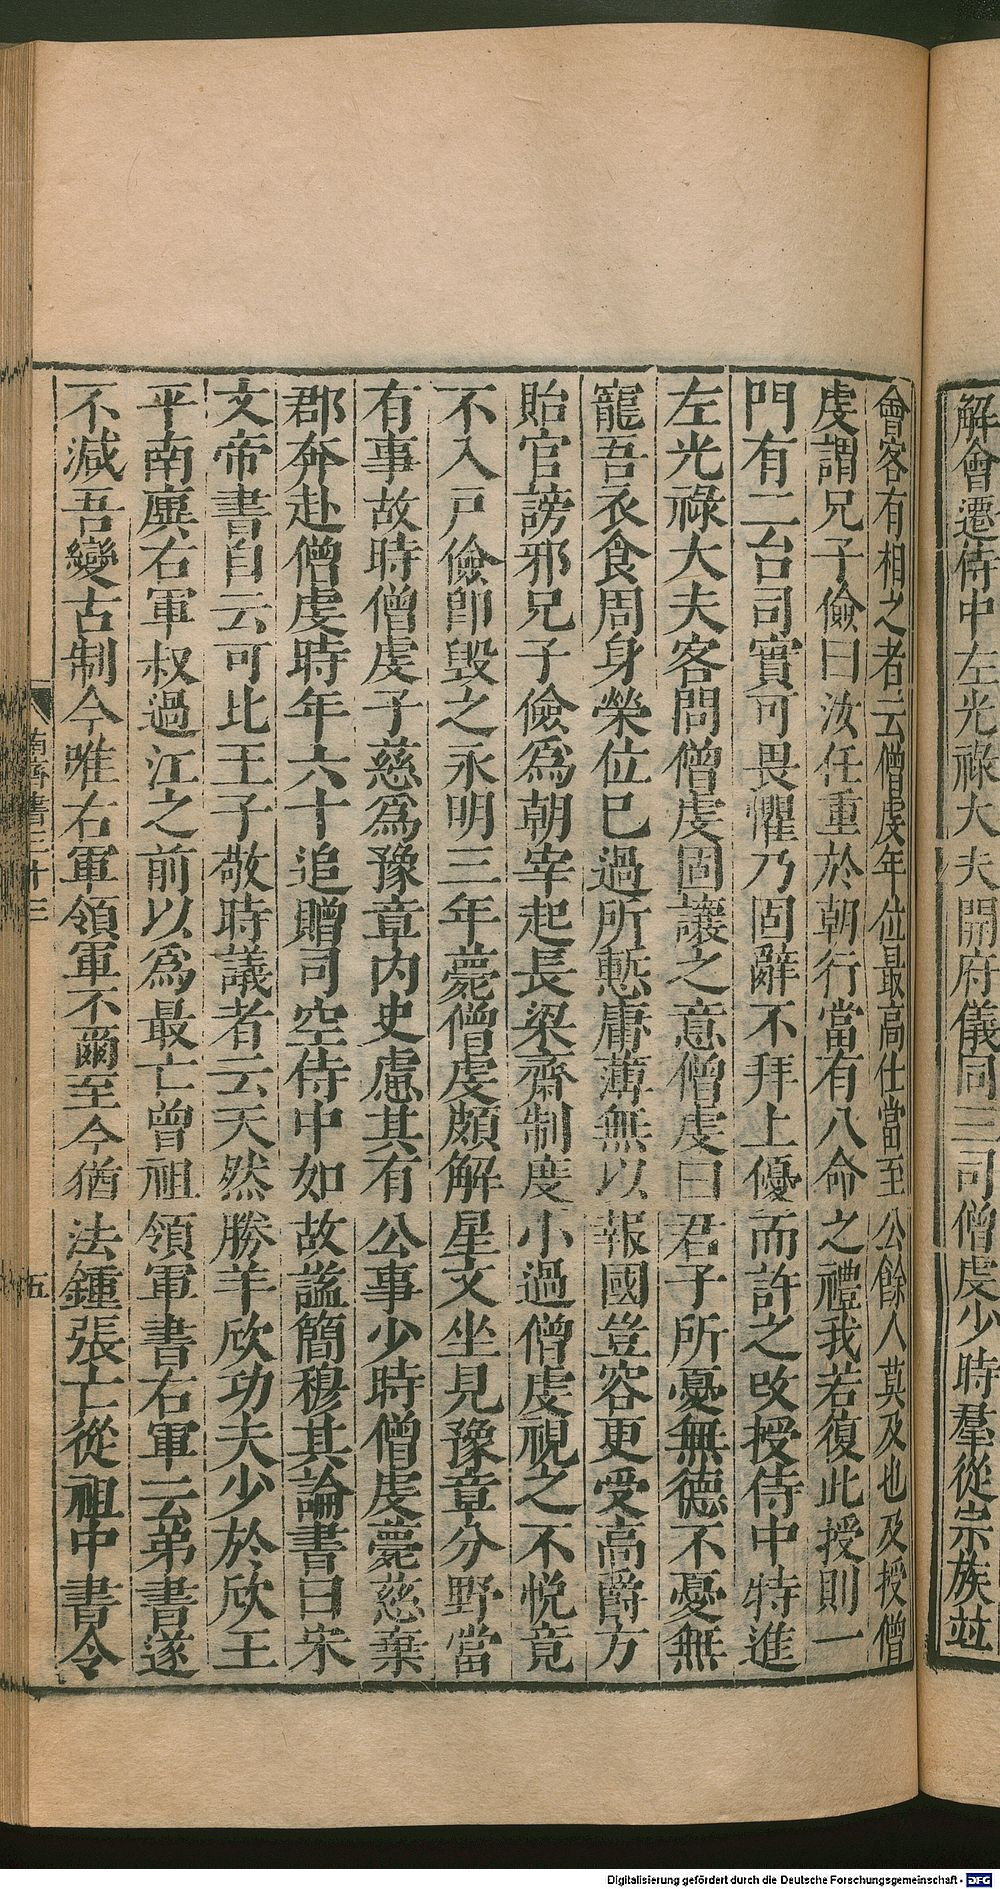 解會遷侍中左光祿大夫開府儀同三司僧虔少時羣從宗族並
會客有相之者云僧虔年位最高仕當至公餘人莫及也及授僧
虔謂兄子儉曰汝任重於朝行當有八命之禮我若復此授則一
門有二台司實可畏懼乃固辭不拜上優而許之改授侍中特進
左光祿大夫客問僧虔固讓之意僧虔曰君子所憂無德不憂無
寵吾衣食周身榮位已過所慙庸薄無以報國豈容更受高爵方
貽官謗邪兄子儉為朝宰起長梁齋制度小過僧虔視之不悅竟
不入戶儉即毀之永明三年薨僧虔頗解星文坐見豫章分野當
有事故時僧虔子慈為豫章內史慮其有公事少時僧虔薨慈棄
郡奔赴僧虔時年六十追贈司空侍中如故諡簡穆其論書曰宋
文帝書自云可比王子敬時議者云天然勝羊欣功夫少於欣王
平南廙右軍叔過江之前以為最亡曾祖領軍書右軍云弟書遂
不減吾變古制今唯右軍領軍不爾至今猶法鍾張亡從祖中書令
南齊書三十三
五
Digitalisierung gefördert durch die Deutsche Forschungsgemeinschaft - DFG